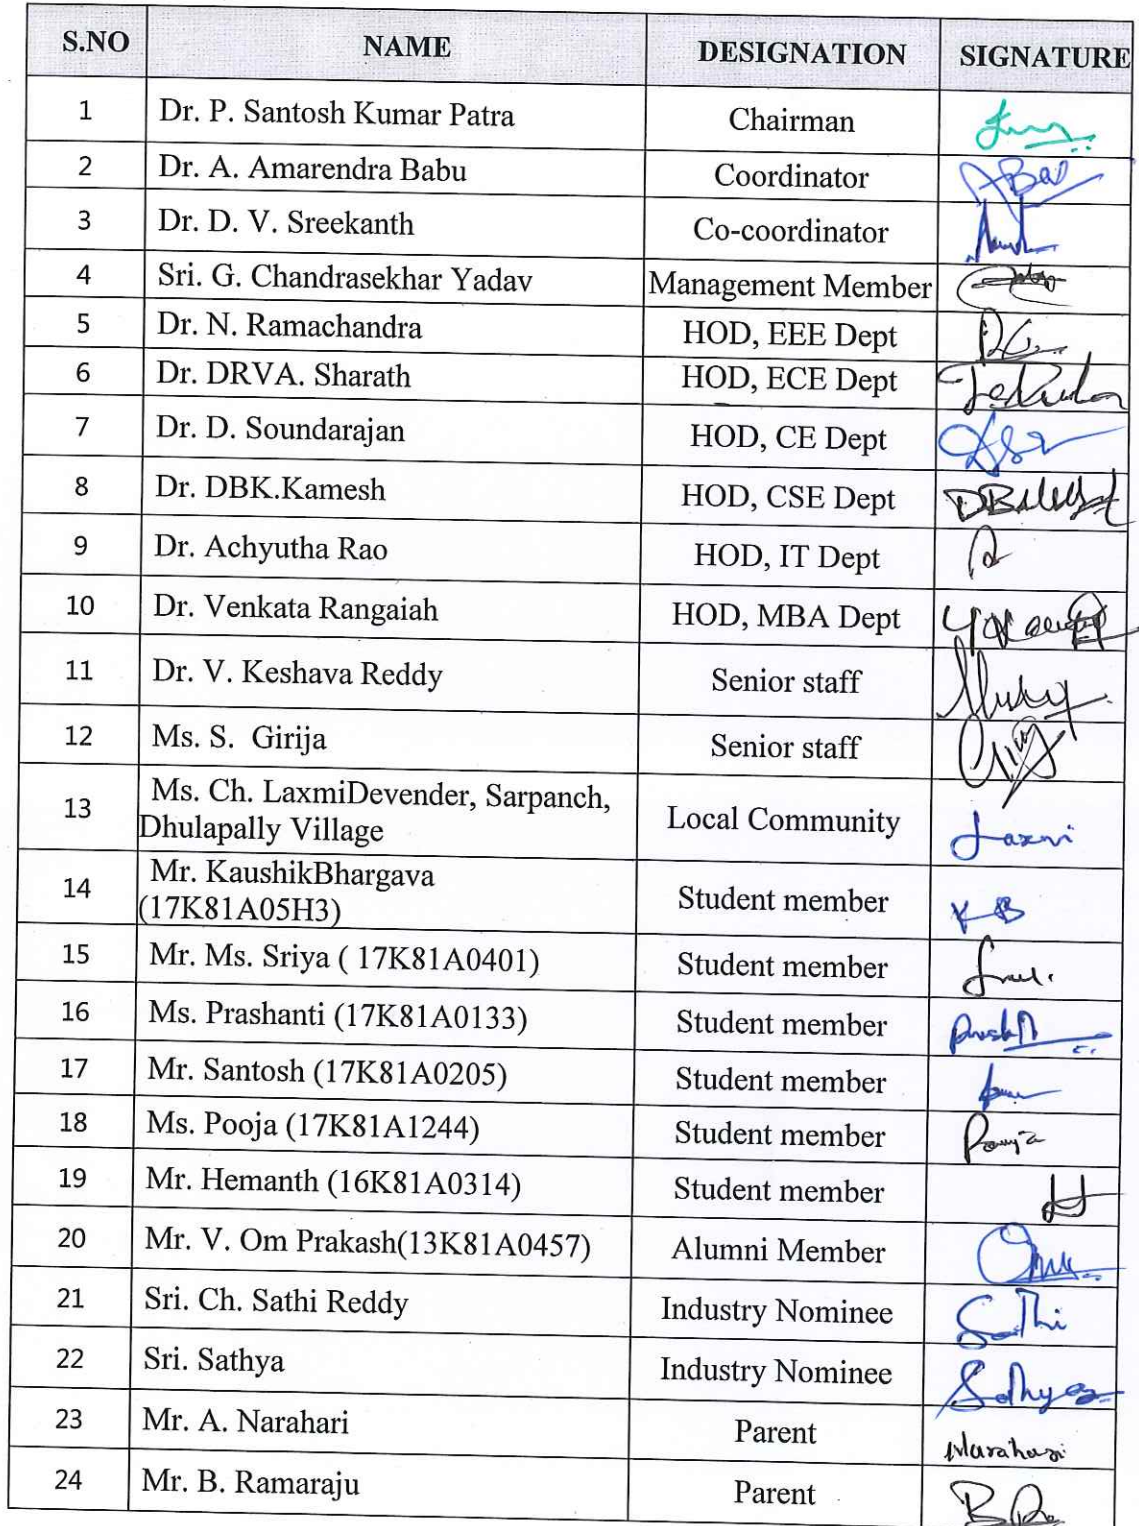 S.NO NAME DESIGNATION SIGNATURE
1 Dr. P. Santosh Kumar Patra Chairman
2 Dr. A. Amarendra Babu Coordinator
3 Dr. D. V. Sreekanth Co-coordinator
4 Sri. G. Chandrasekhar Yadav Management Member
5 Dr. N. Ramachandra HOD, EEE Dept
6 Dr. DRVA. Sharath HOD, ECE Dept
7 Dr. D. Soundarajan HOD, CE Dept
8 Dr. DBK.Kamesh HOD, CSE Dept
9 Dr. Achyutha Rao HOD, IT Dept
10 Dr. Venkata Rangaiah HOD, MBA Dept
11 Dr. V. Keshava Reddy Senior staff
12 Ms. S. Girija Senior staff
13 Ms. Ch. LaxmiDevender, Sarpanch,
Dhulapally Village Local Community Laxmi
14 Mr. KaushikBhargava
(17K81A05H3) Student member KB
15 Mr. Ms. Sriya ( 17K81A0401) Student member
16 Ms. Prashanti (17K81A0133) Student member
17 Mr. Santosh (17K81A0205) Student member
18 Ms. Pooja (17K81A1244) Student member Pooja
19 Mr. Hemanth (16K81A0314) Student member H
20 Mr. V. Om Prakash(13K81A0457) Alumni Member
21 Sri. Ch. Sathi Reddy Industry Nominee Sathi
22 Sri. Sathya Industry Nominee Sathya
23 Mr. A. Narahari Parent Narahari
24 Mr. B. Ramaraju Parent